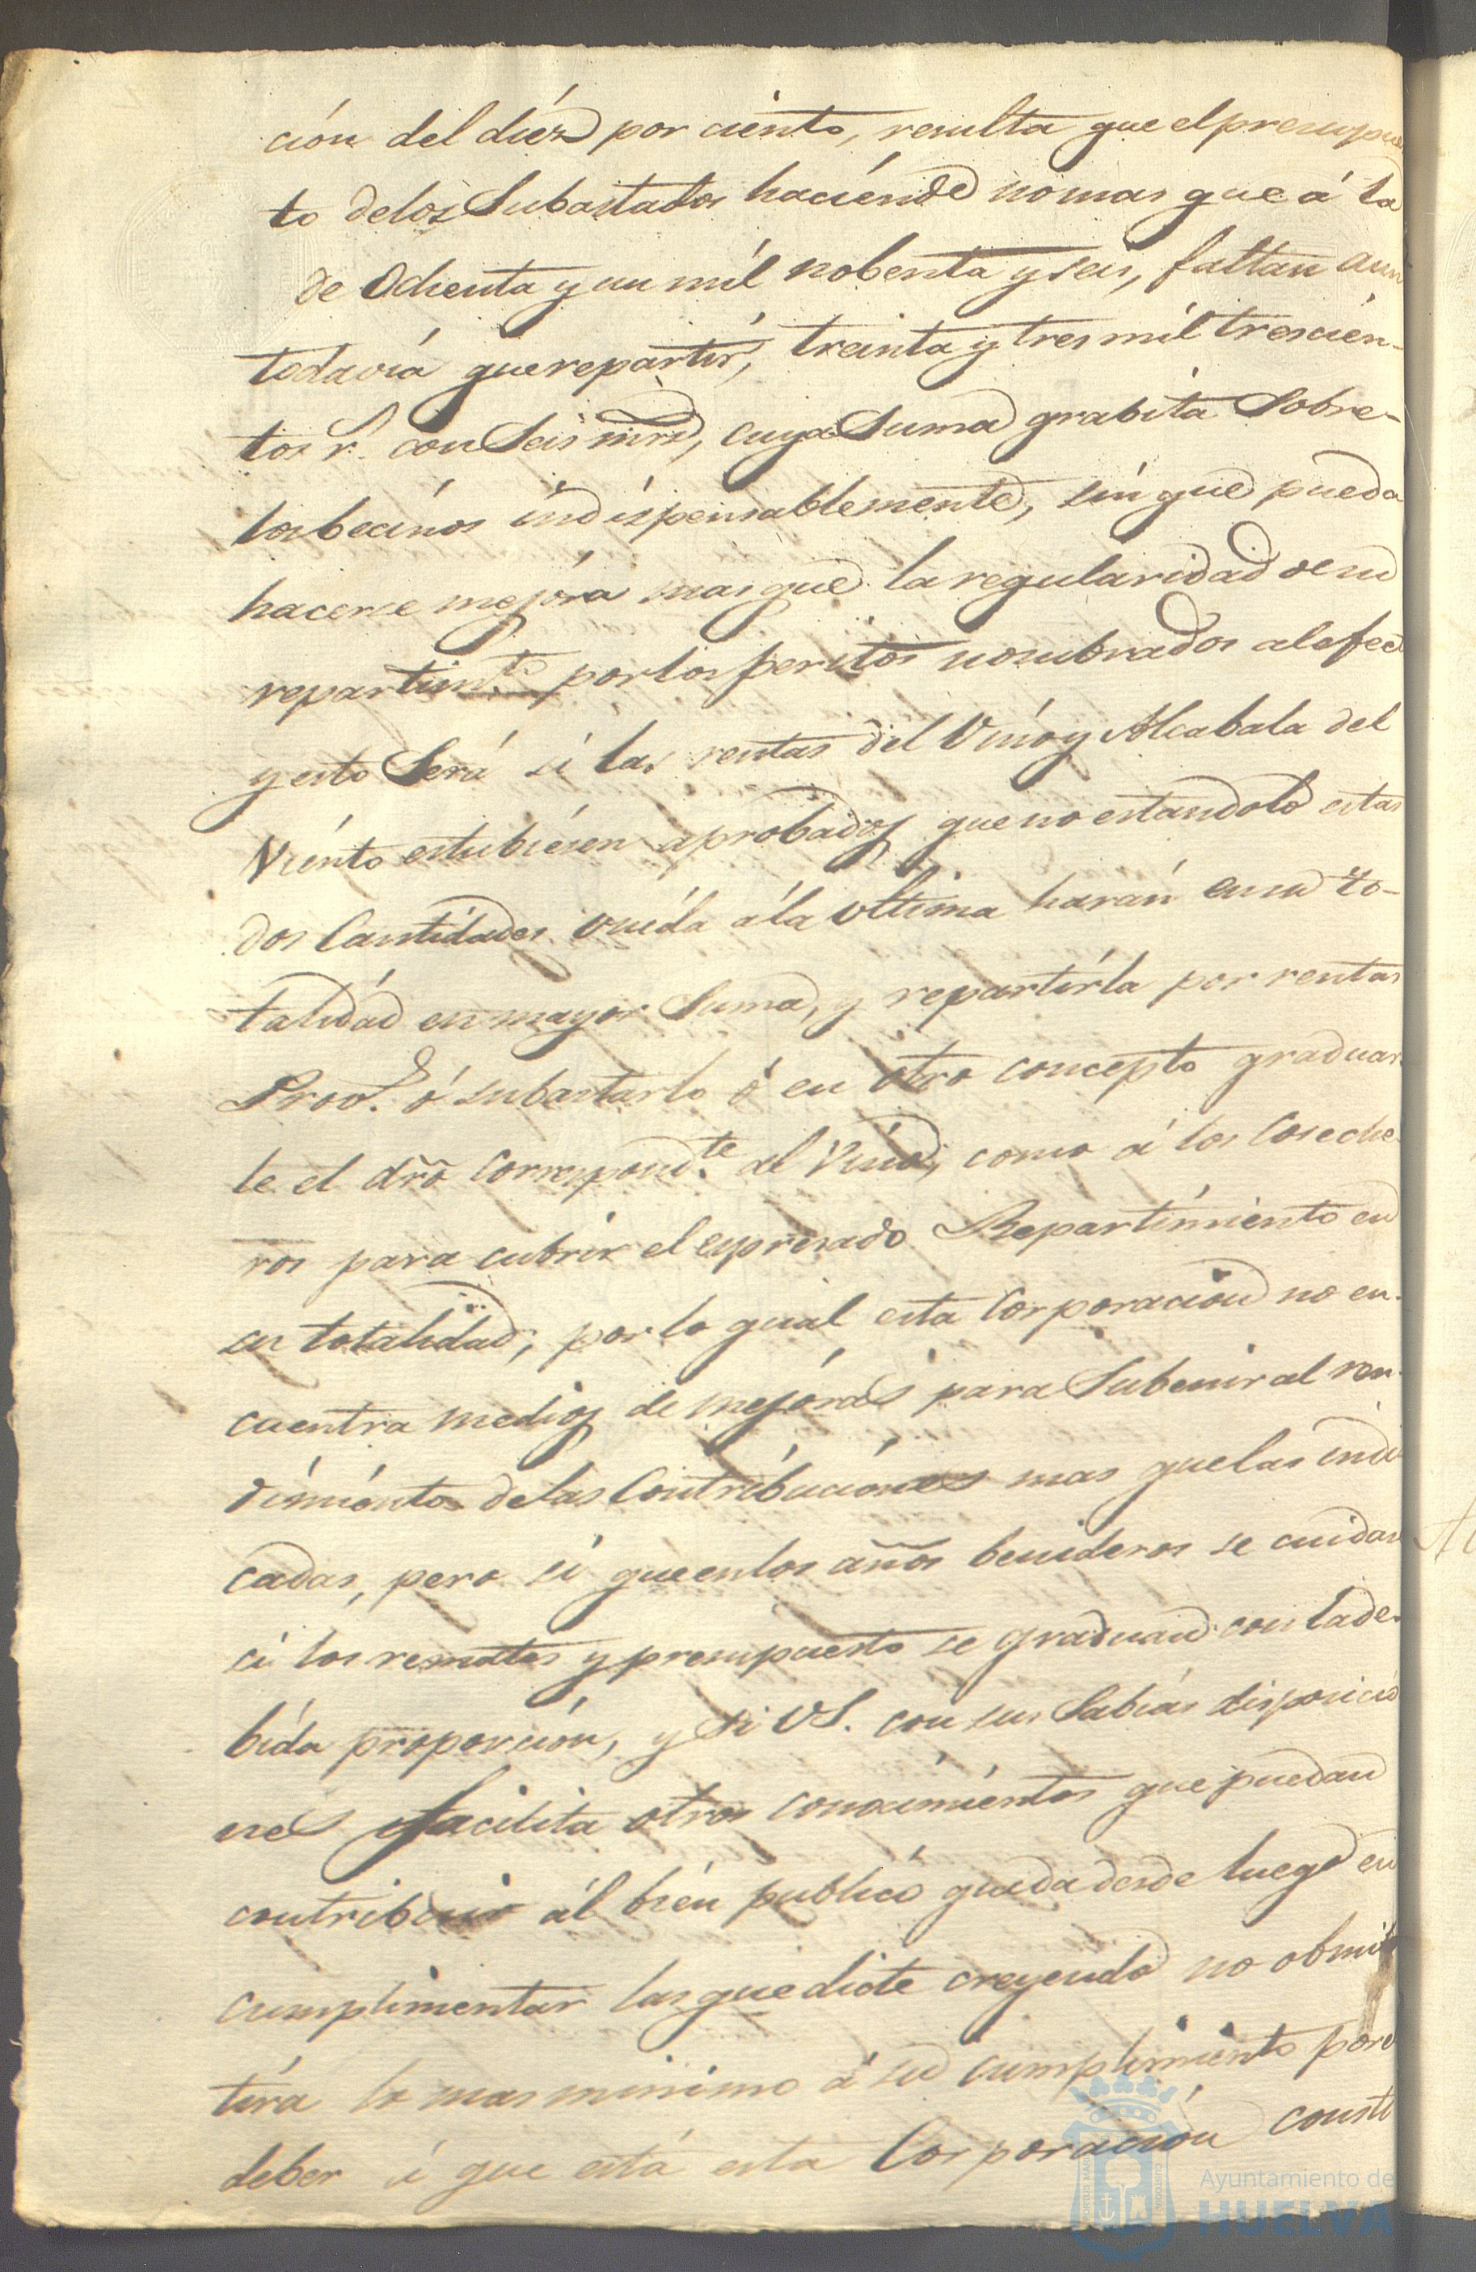 ción del diéz por ciento, resulta que el presupues
to delos Subastados haciénde no mas que á la
de Ochenta y un mil nobenta y seis, faltan aun
todavía que repartir, treinta y tres mil trescién-
tos r.s con Seis mrs, cuya Suma grabita Sobre-
los becinos indispensablemente, sin que pueda
hacerse mejóra mas que la regularidad de su
repartim.to por los peritos nombrados al efecto
y esto Será si las rentas del Vino y Alcabala del
Viénto estubiésen aprobados que no estandolo estas
dos Cantidades unida á la ultima harán en su to-
talidad en mayor Suma, y repartirla por rentas
Prov.s ó subastarlo ó en otro concepto graduar
le el dro correspond.te al Vino, como á los Coseche
ros para cubrir el expresado Repartimiento en
su totalidad, por lo qual esta Corporación no en-
cuentra medios de mejóras para Subenir al ren-
dimiénto de las Contribuciónes mas que las indi
cadas, pero si que en los años benideros se cuidará
si los remates y presupuesto se graduan con la de-
bida proporción, y si VS. con sus Sabias disposicio
nes facilita otros conocimiéntos que puedan
contribuir ál bién publico queda desde luego en
cumplimentar las que dicte creyendo no obmi
tirá lo mas minimo á su cumplimiento por el
deber á que está esta Corporación consti
Ayuntamiento de
HUELVA